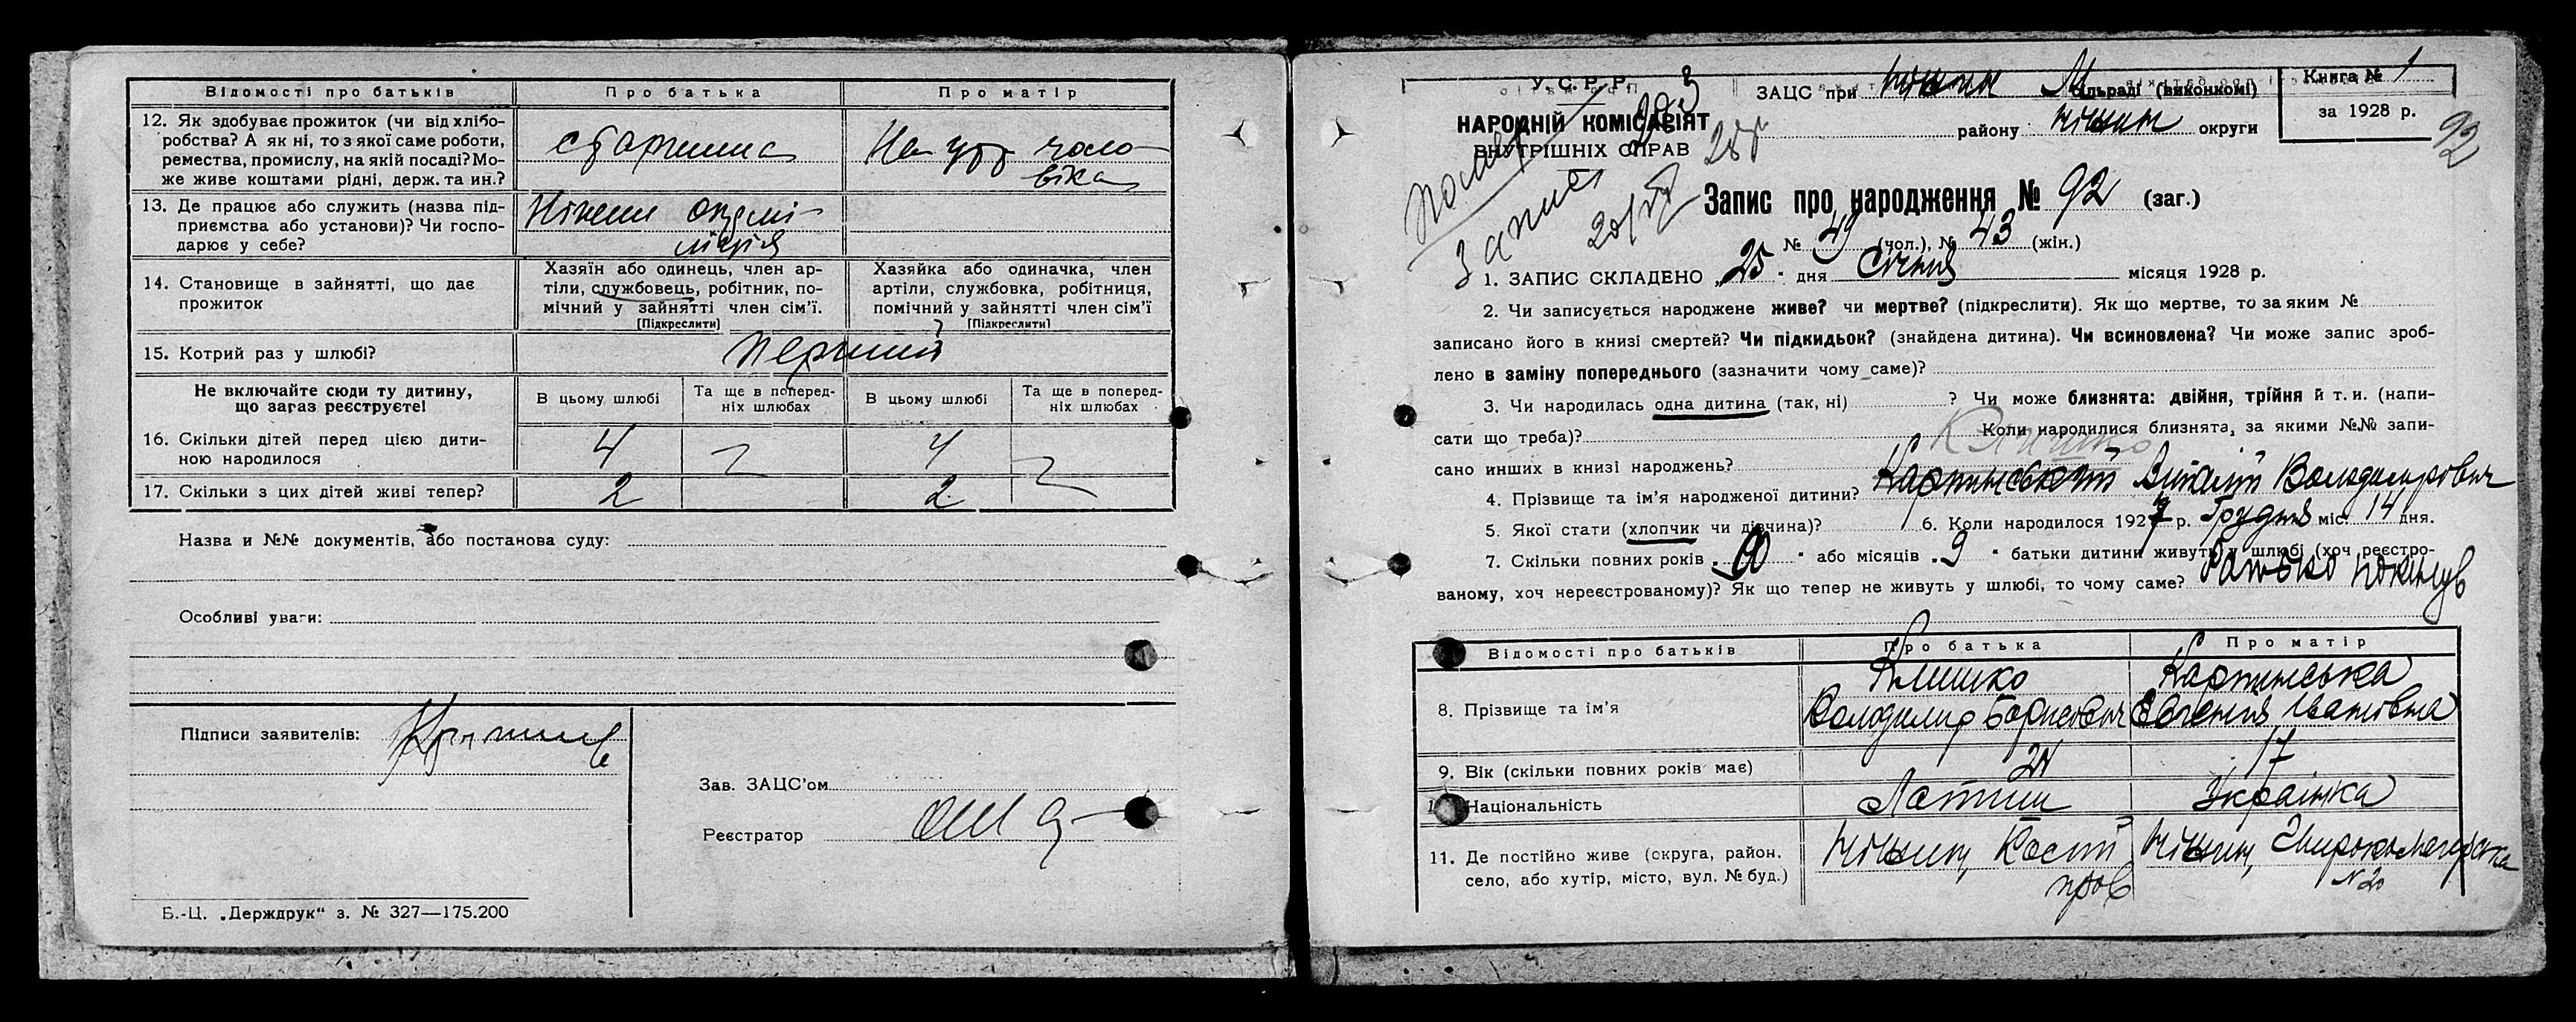 Відомості про батьків Про батька Про матір
12. Як здобуває прожиток (чи від хлібо-
робства? А як ні, то з якої саме роботи,
ремества, промислу, на якій посаді? Мо-
же живе коштами рідні, держ. та ин.?
старшина
На утр чоло-
віка
13. Де працює або служить (назва під-
приємства або установи)? Чи госпо-
дарює у себе?
Ніжен окрмі-
ліція
14. Становище в зайнятті, що дає
прожиток
Хазяїн або одинець, член ар-
тіли, службовець, робітник, по-
мічний у зайнятті член сім'ї.
[Підкреслити]
Хазяйка або одиначка, член
артіли, службовка, робітниця,
помічний у зайнятті член сім'ї
[Підкреслити]
15. Котрий раз у шлюбі? перший
Не включайте сюди ту дитину,
що зараз реєструєте!
В цьому шлюбі
Та ще в поперед-
ніх шлюбах
В цьому шлюбі
Та ще в поперед-
ніх шлюбах
16. Скільки дітей перед цією дити-
ною народилося
4 4
17. Скільки з цих дітей живі тепер? 2 2
Назва и №№ документів, або постанова суду:
Особливі уваги:
Підписи заявителів:
Зав. ЗАЦС'ом
Реєстратор
Б.-Ц. „Держдрук" з. № 327—175.200
У. С. Р. Р.
НАРОДНІЙ КОМІСАРІЯТ
ВНУТРІШНІХ СПРАВ
ЗАЦС при Ніжин М сільраді (виконкомі)
району Ніжин округи
Книга № 1
за 1928 р.
92
Запис про народження № 92 (заг.)
№ 49 (чол.), № 43 (жін.)
1. ЗАПИС СКЛАДЕНО „25" дня Січня місяця 1928 р.
2. Чи записується народжене живе? чи мертве? (підкреслити). Як що мертве, то за яким №
записано його в книзі смертей? Чи підкидьок? (знайдена дитина). Чи всиновлена? Чи може запис зроб-
лено в заміну попереднього (зазначити чому саме)?
3. Чи народилась одна дитина (так, ні) ? Чи може близнята: двійня, трійня й т. и. (напи-
сати що треба)? Коли народилися близнята, за якими №№ запи-
сано инших в книзі народжень?
Клишко
4. Прізвище та ім'я народженої дитини? Картинський Виталій Володимирович
5. Якої стати (хлопчик чи дівчина)? 6. Коли народилося 1927 р. Грудня міс. 14 дня.
7. Скільки повних років „ " або місяців „9" батьки дитини живуть у шлюбі (хоч реєстро-
ваному, хоч нереєстрованому)? Як що тепер не живуть у шлюбі, то чому саме? батько покинув
Відомості про батьків Про батька Про матір
8. Прізвище та ім'я
Клишко
Володимир Борисович
Картинська
Євгенія Івановна
9. Вік (скільки повних років має) 24 17
10. Національність Латиш Українка
11. Де постійно живе (округа, район.
село, або хутір, місто, вул. № буд.)
Ніжин, Кості
пров
Ніжин, Широкомагерська
№ 20